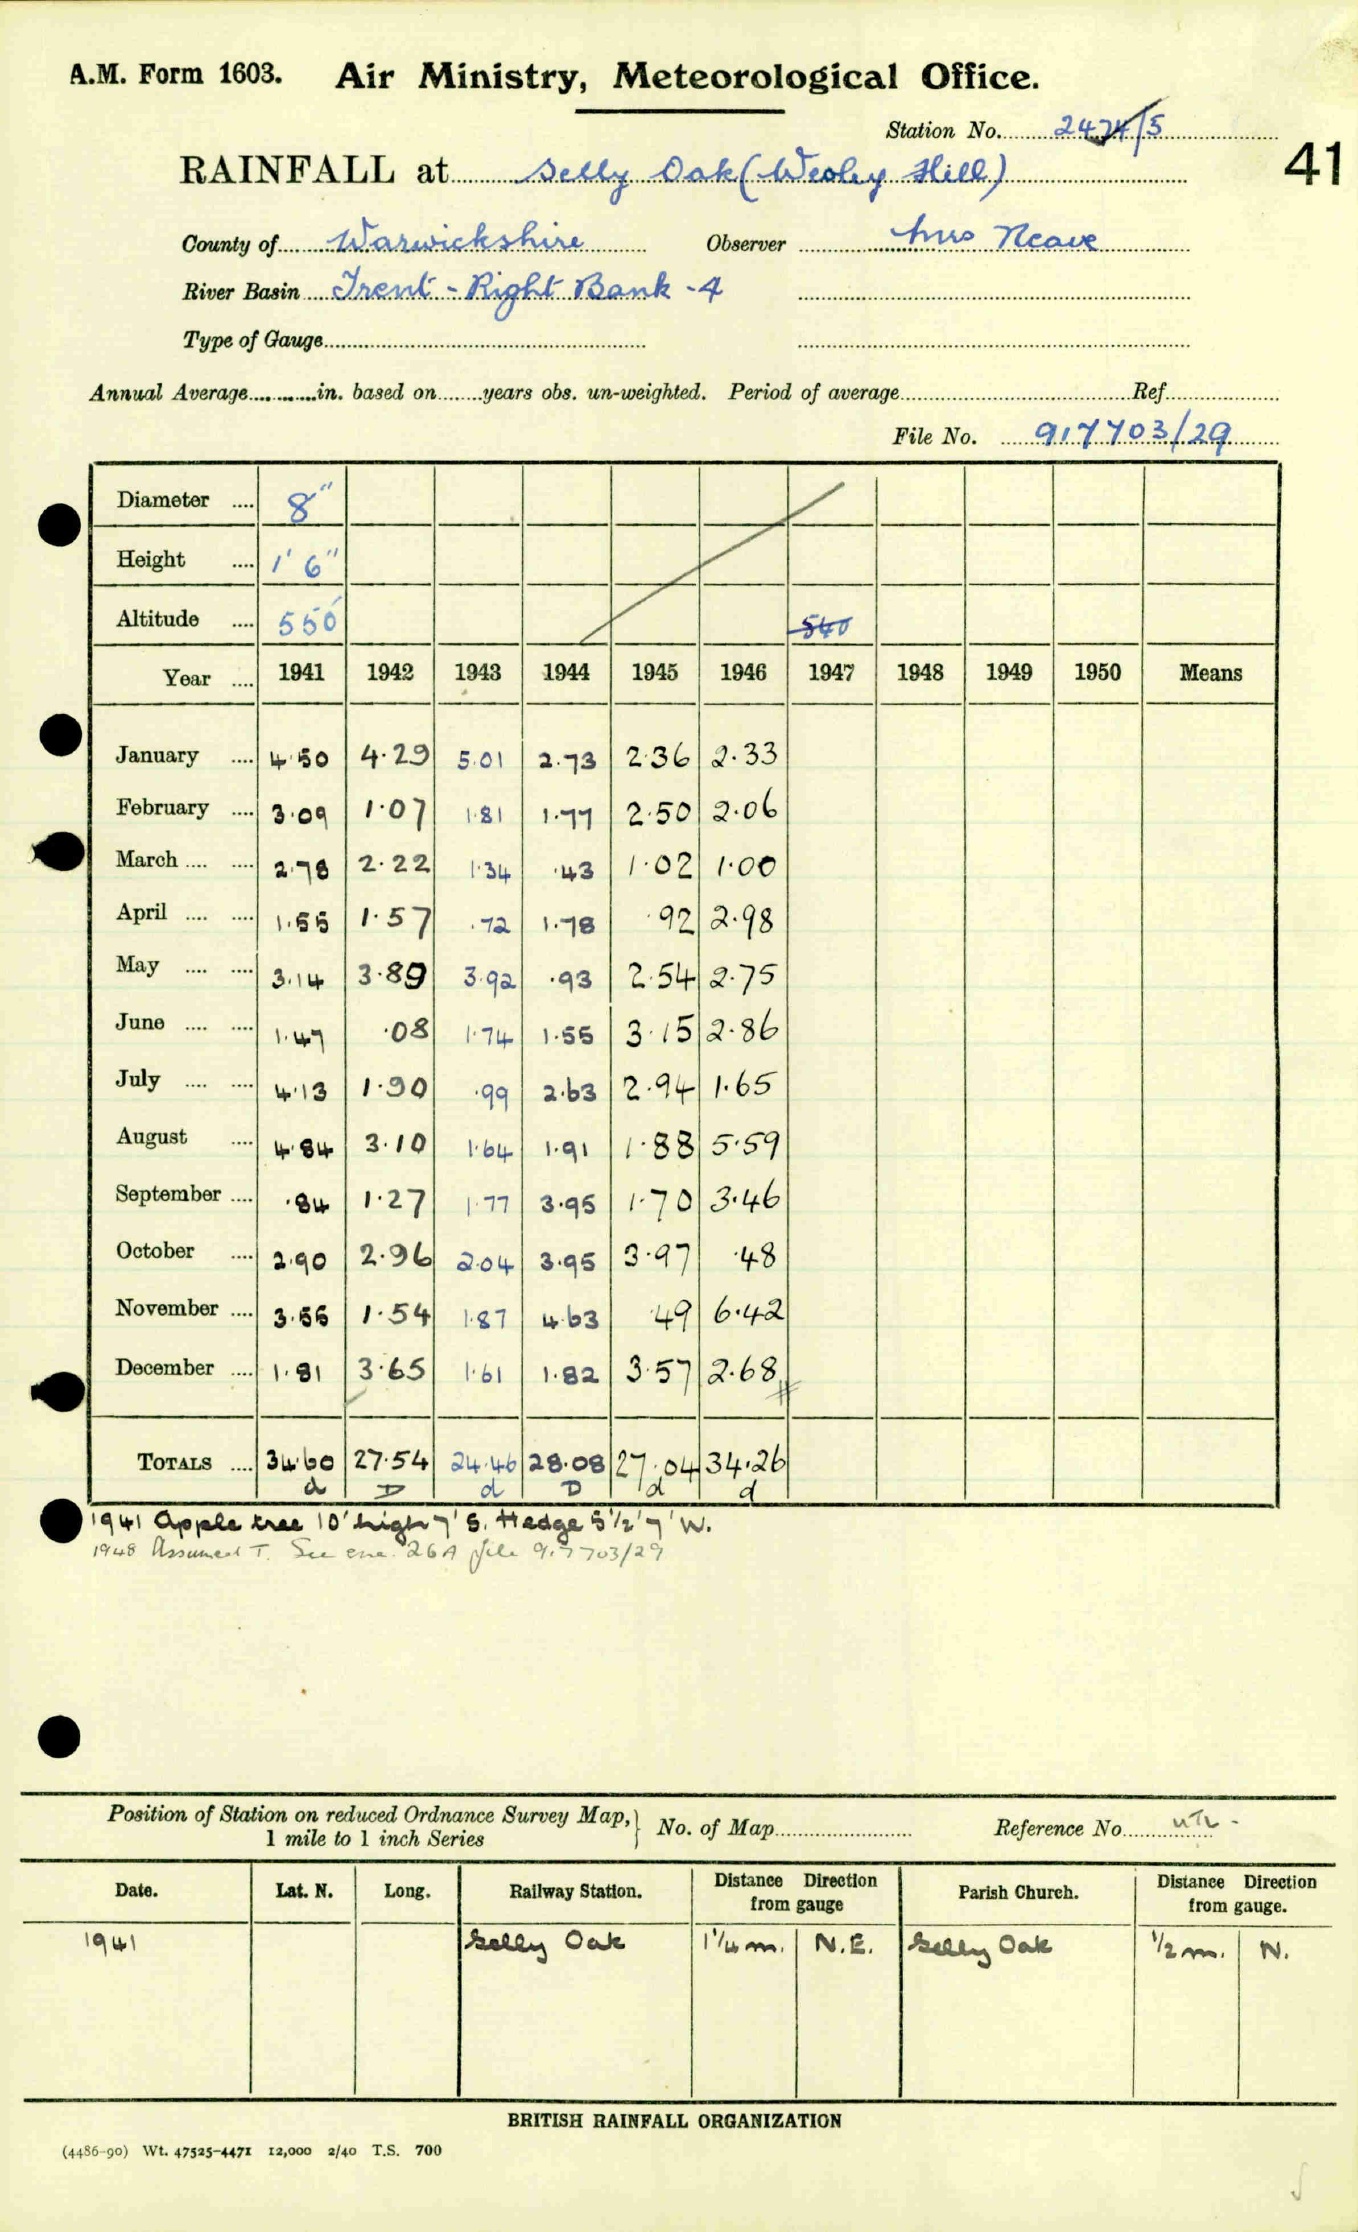 A.M. Form 1603. Air Ministry, Meteorological Office.
Station No. 2474/5
41
RAINFALL at Selly Oak (Weoley Hill)
County of Warwickshire Observer Mrs Neave
River Basin Trent - Right Bank - 4
Type of Gauge
Annual Average in. based on years obs. un-weighted. Period of average Ref.
File No. 917703/29
Diameter 8"
Height 1' 6"
Altitude 550' 540
Year 1941 1942 1943 1944 1945 1946 1947 1948 1949 1950 Means
January 4.50 4.29 5.01 2.73 2.36 2.33
February 3.09 1.07 1.81 1.77 2.50 2.06
March 2.78 2.22 1.34 .43 1.02 1.00
April 1.55 1.57 .72 1.78 .92 2.98
May 3.14 3.89 3.92 .93 2.54 2.75
June 1.47 .08 1.74 1.55 3.15 2.86
July 4.13 1.90 .99 2.63 2.94 1.65
August 4.84 3.10 1.64 1.91 1.88 5.59
September .84 1.27 1.77 3.95 1.70 3.46
October 2.90 2.96 2.04 3.95 3.97 .48
November 3.55 1.54 1.87 4.63 .49 6.42
December 1.81 3.65 1.61 1.82 3.57 2.68
TOTALS 34.60 27.54 24.46 28.08 27.04 34.26
d D d D d d
1941 Apple tree 10' high 7' S. Hedge 5½' 7' W.
1948 Assumed T. See enc. 26A file 917703/29
Position of Station on reduced Ordnance Survey Map, 1 mile to 1 inch Series } No. of Map Reference No.
Date. Lat. N. Long. Railway Station. Distance from gauge Direction Parish Church. Distance from gauge. Direction
1941 Selly Oak 1¼ m. N.E. Selly Oak ½ m. N.
BRITISH RAINFALL ORGANIZATION
(4486-90) Wt. 47525-4471 12,000 2/40 T.S. 700